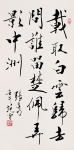 載取白雲歸去
問誰留楚佩弄
影中洲